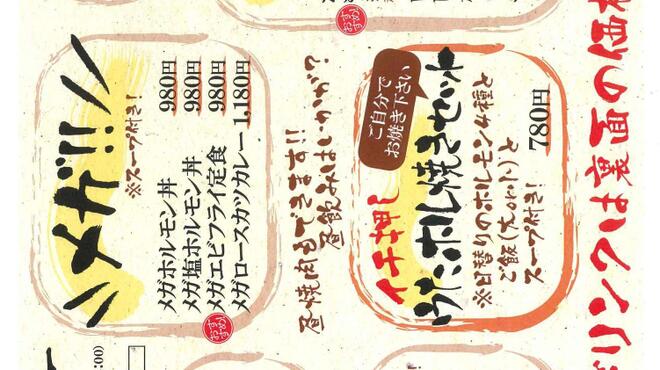 :00)
メガ!!
※スープ付き!
メガホルモン丼 980円
メガ塩ホルモン丼 980円
メガエビフライ定食 980円
メガロースカツカレー 1,180円
おすすめ!
昼焼肉もできます!!
昼飲みはいかが?
おすすめ
イチ押し
ご自分で
お焼き下さい
うたホル焼きセット
※日替りのホルモン4種と
ご飯
スープ付き!
780円
リンクは裏面の価